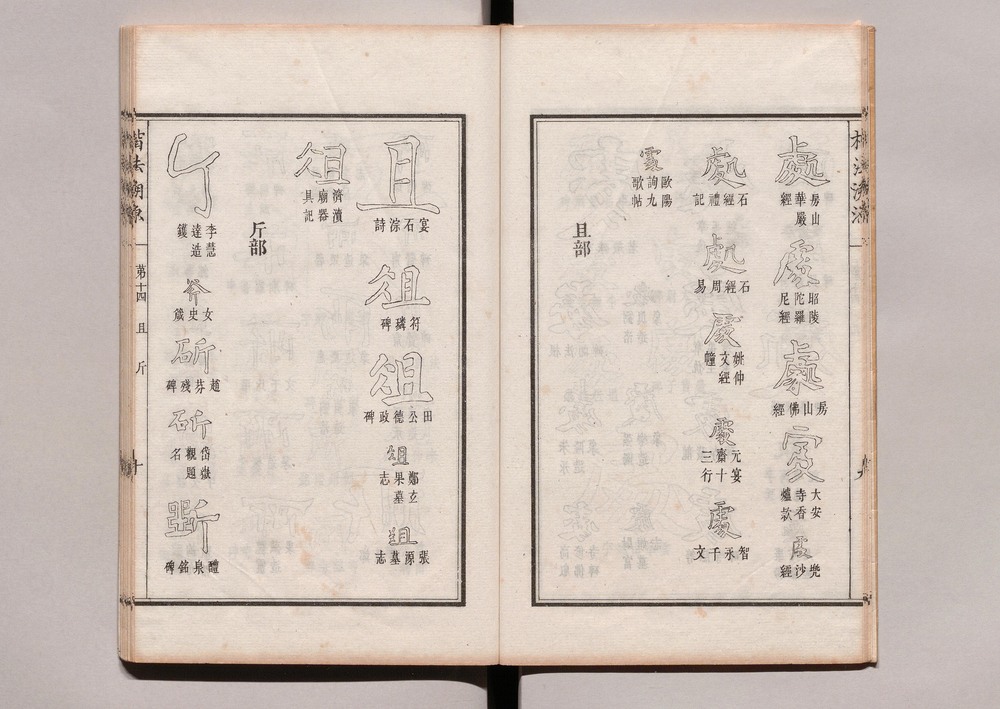 處
房山華嚴經
處
昭陵陀羅尼經
處
房山佛經
處
大安寺香爐款
處
兜沙經
處
石經禮記
處
石經周易
處
姚仲文經幢
處
元宴齋三十行
處
智永千文
處
歐陽詢九歌帖
且部
且
宴石淙詩
俎
符璘碑
俎
田公德政碑
俎
鄭玄果墓志
俎
張源墓志
俎
濟瀆廟器具記
斤部
斤
李慧達造鑊
斧
女史箴
斫
趙芬殘碑
斫
岱嶽觀題名
斷
醴泉銘碑
楷法溯源
第十四
且
斤
十